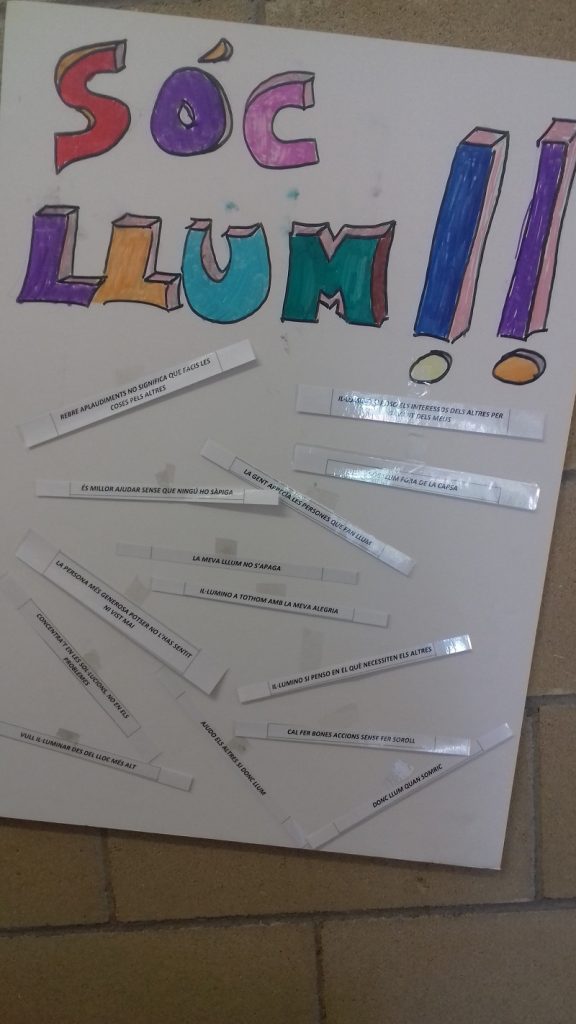 SÓC
LLUM!!
REBRE APLAUDIMENTS NO SIGNIFICA QUE FACIS LES
COSES PELS ALTRES
POSO ELS INTERESSOS DELS ALTRES PER
DELS MEUS
LLUM FORA DE LA CAPSA
LA GENT APRECIA LES PERSONES QUE FAN LLUM
ÉS MILLOR AJUDAR SENSE QUE NINGÚ HO SÀPIGA
LA MEVA LLLUM NO S'APAGA
IL·LUMINO A TOTHOM AMB LA MEVA ALEGRIA
LA PERSONA MÉS GENEROSA POTSER NO L'HAS SENTIT
NI VIST MAI
CONCENTRA'T EN LES SOL·LUCIONS, NO EN ELS
PROBLEMES
IL·LUMINO SI PENSO EN EL QUÈ NECESSITEN ELS ALTRES
CAL FER BONES ACCIONS SENSE FER SOROLL
VULL IL·LUMINAR DES DEL LLOC MÉS ALT
AJUDO ELS ALTRES SI DONC LLUM
DONC LLUM QUAN SOMRIC